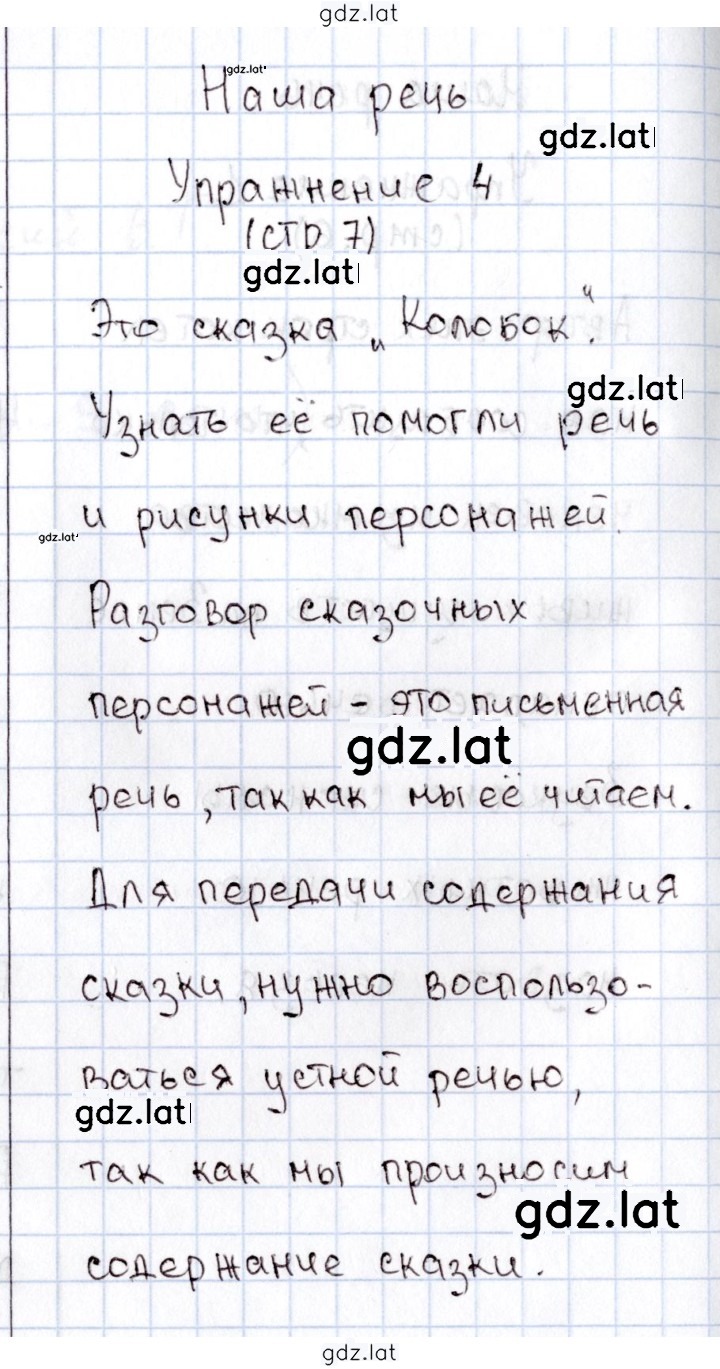 gdz.lat
gdz.lat
Наша речь
gdz.lat
Упражнение 4
(стр 7)
gdz.lat
Это сказка „Колобок“.
gdz.lat
Узнать её помогли речь
и рисунки персонажей.
gdz.lat
Разговор сказочных
персонажей - это письменная
gdz.lat
речь, так как мы её читаем.
Для передачи содержания
сказки, нужно воспользо-
ваться устной речью,
gdz.lat
так как мы произносим
gdz.lat
содержание сказки.
gdz.lat